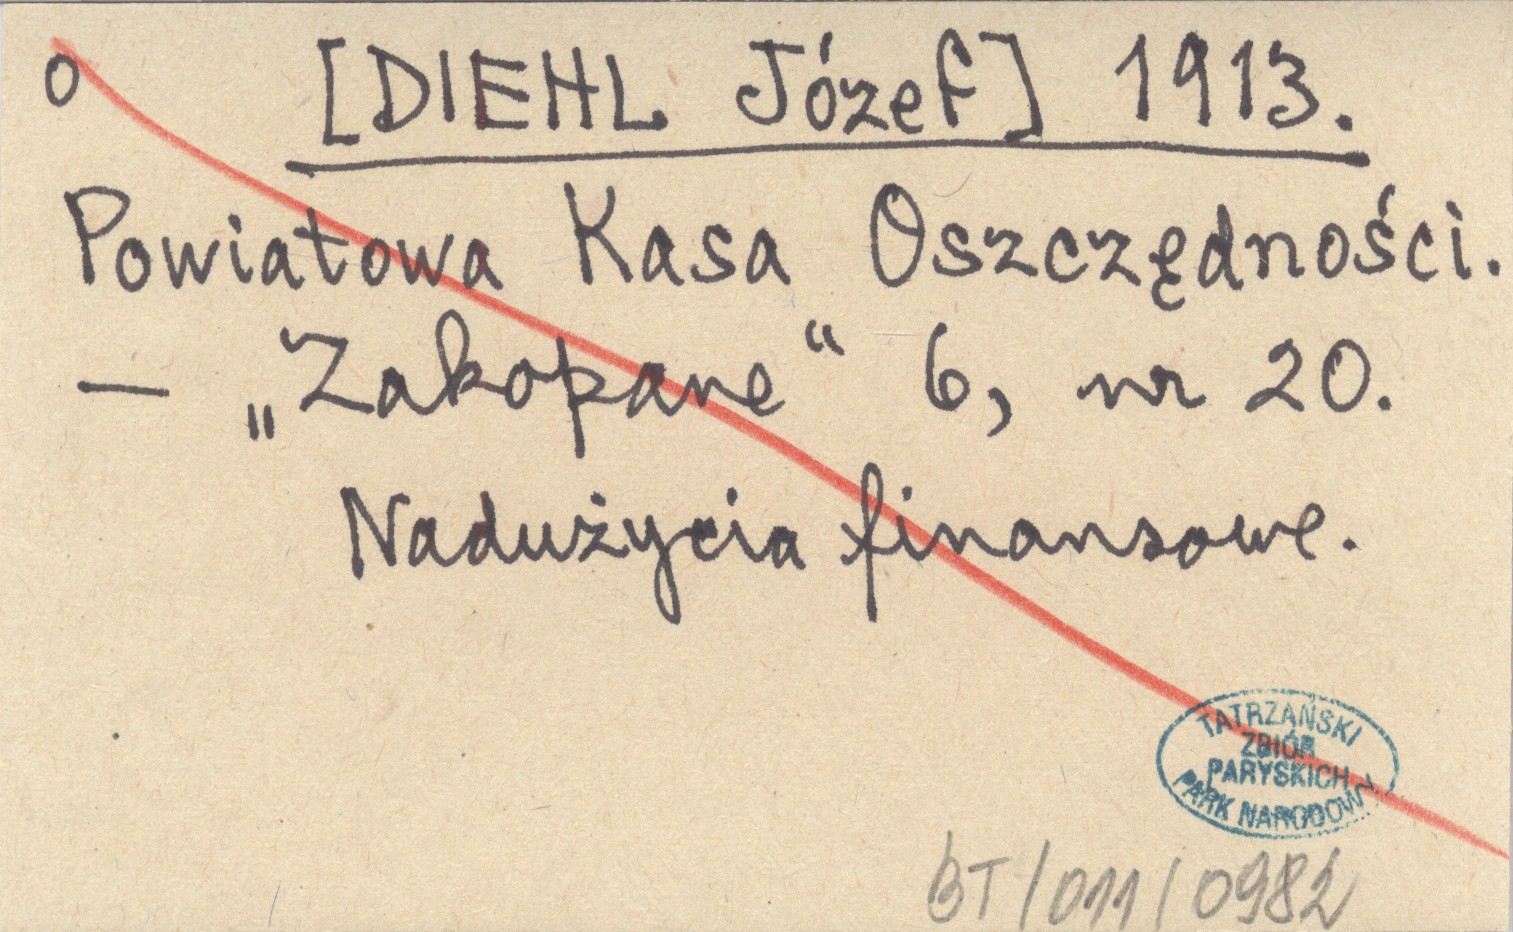 o [DIEHL Józef] 1913.
Powiatowa Kasa Oszczędności.
— „Zakopane“ 6, nr 20.
Nadużycia finansowe.
TATRZAŃSKI
ZBIÓR
PARYSKICH
PARK NARODOWY
BT/011/0982